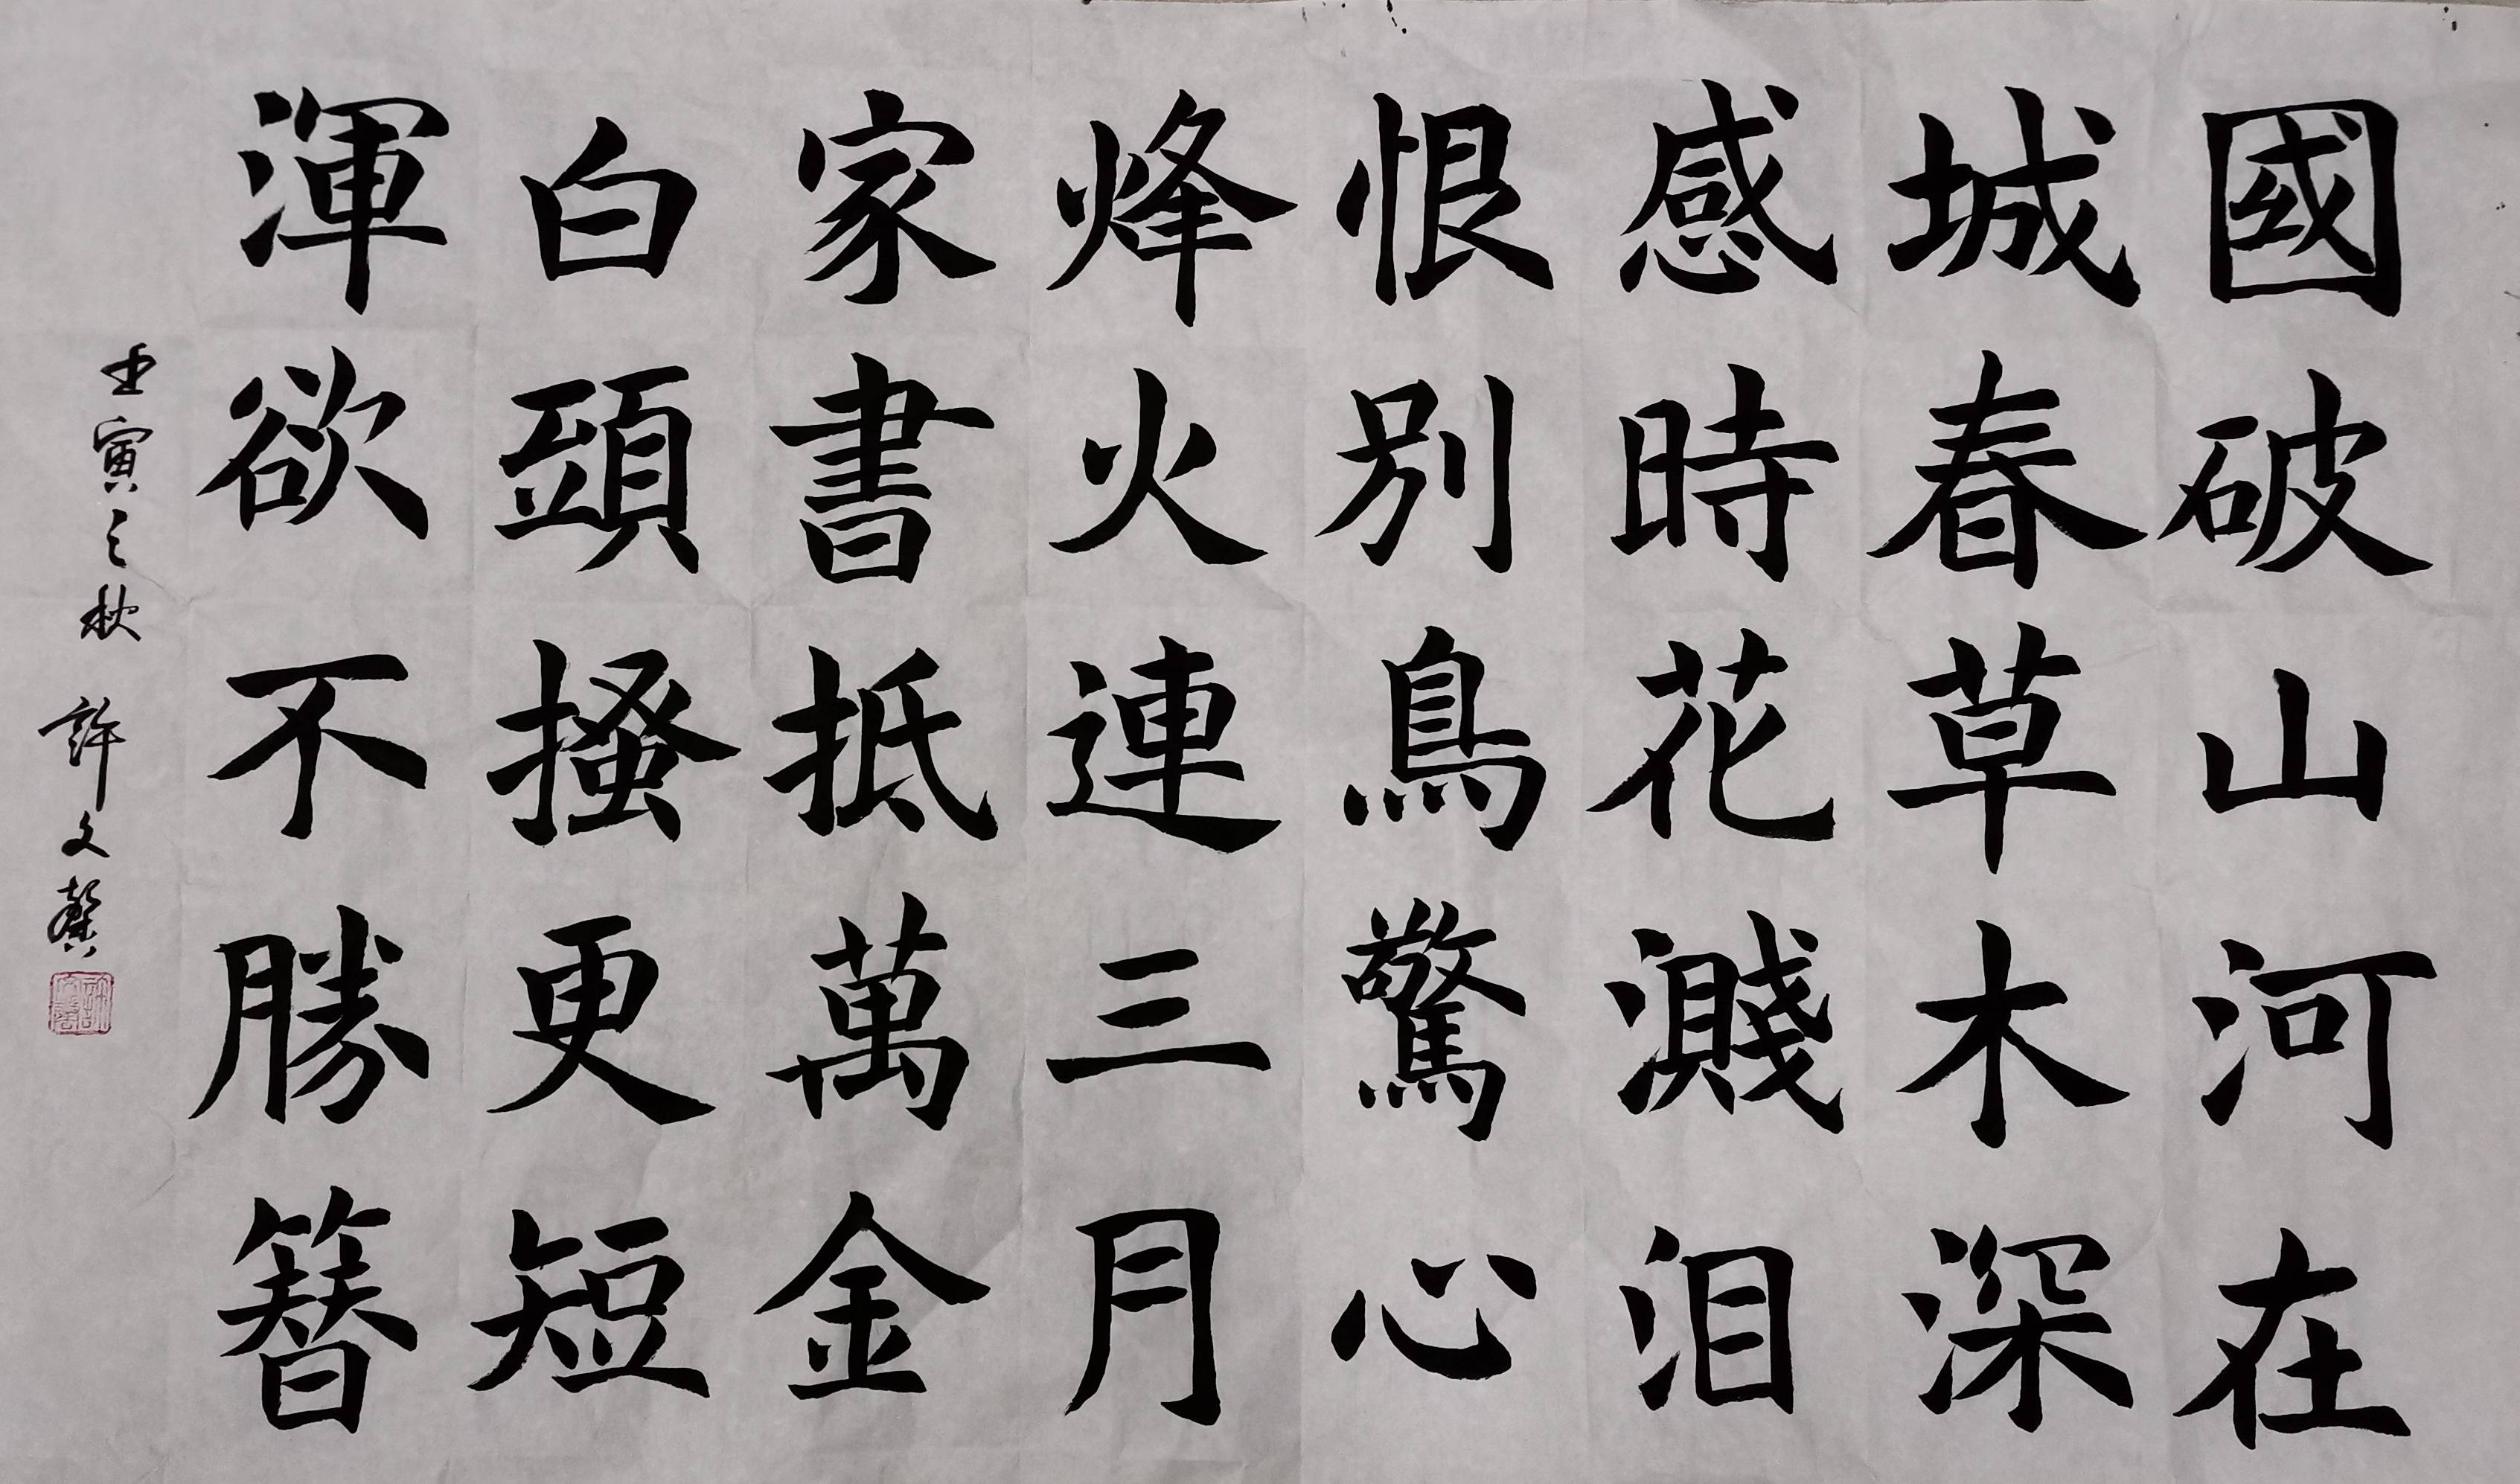 國破山河在
城春草木深
感時花濺泪
恨別鳥驚心
烽火連三月
家書抵萬金
白頭搔更短
渾欲不勝簪
壬寅之秋 許文馨